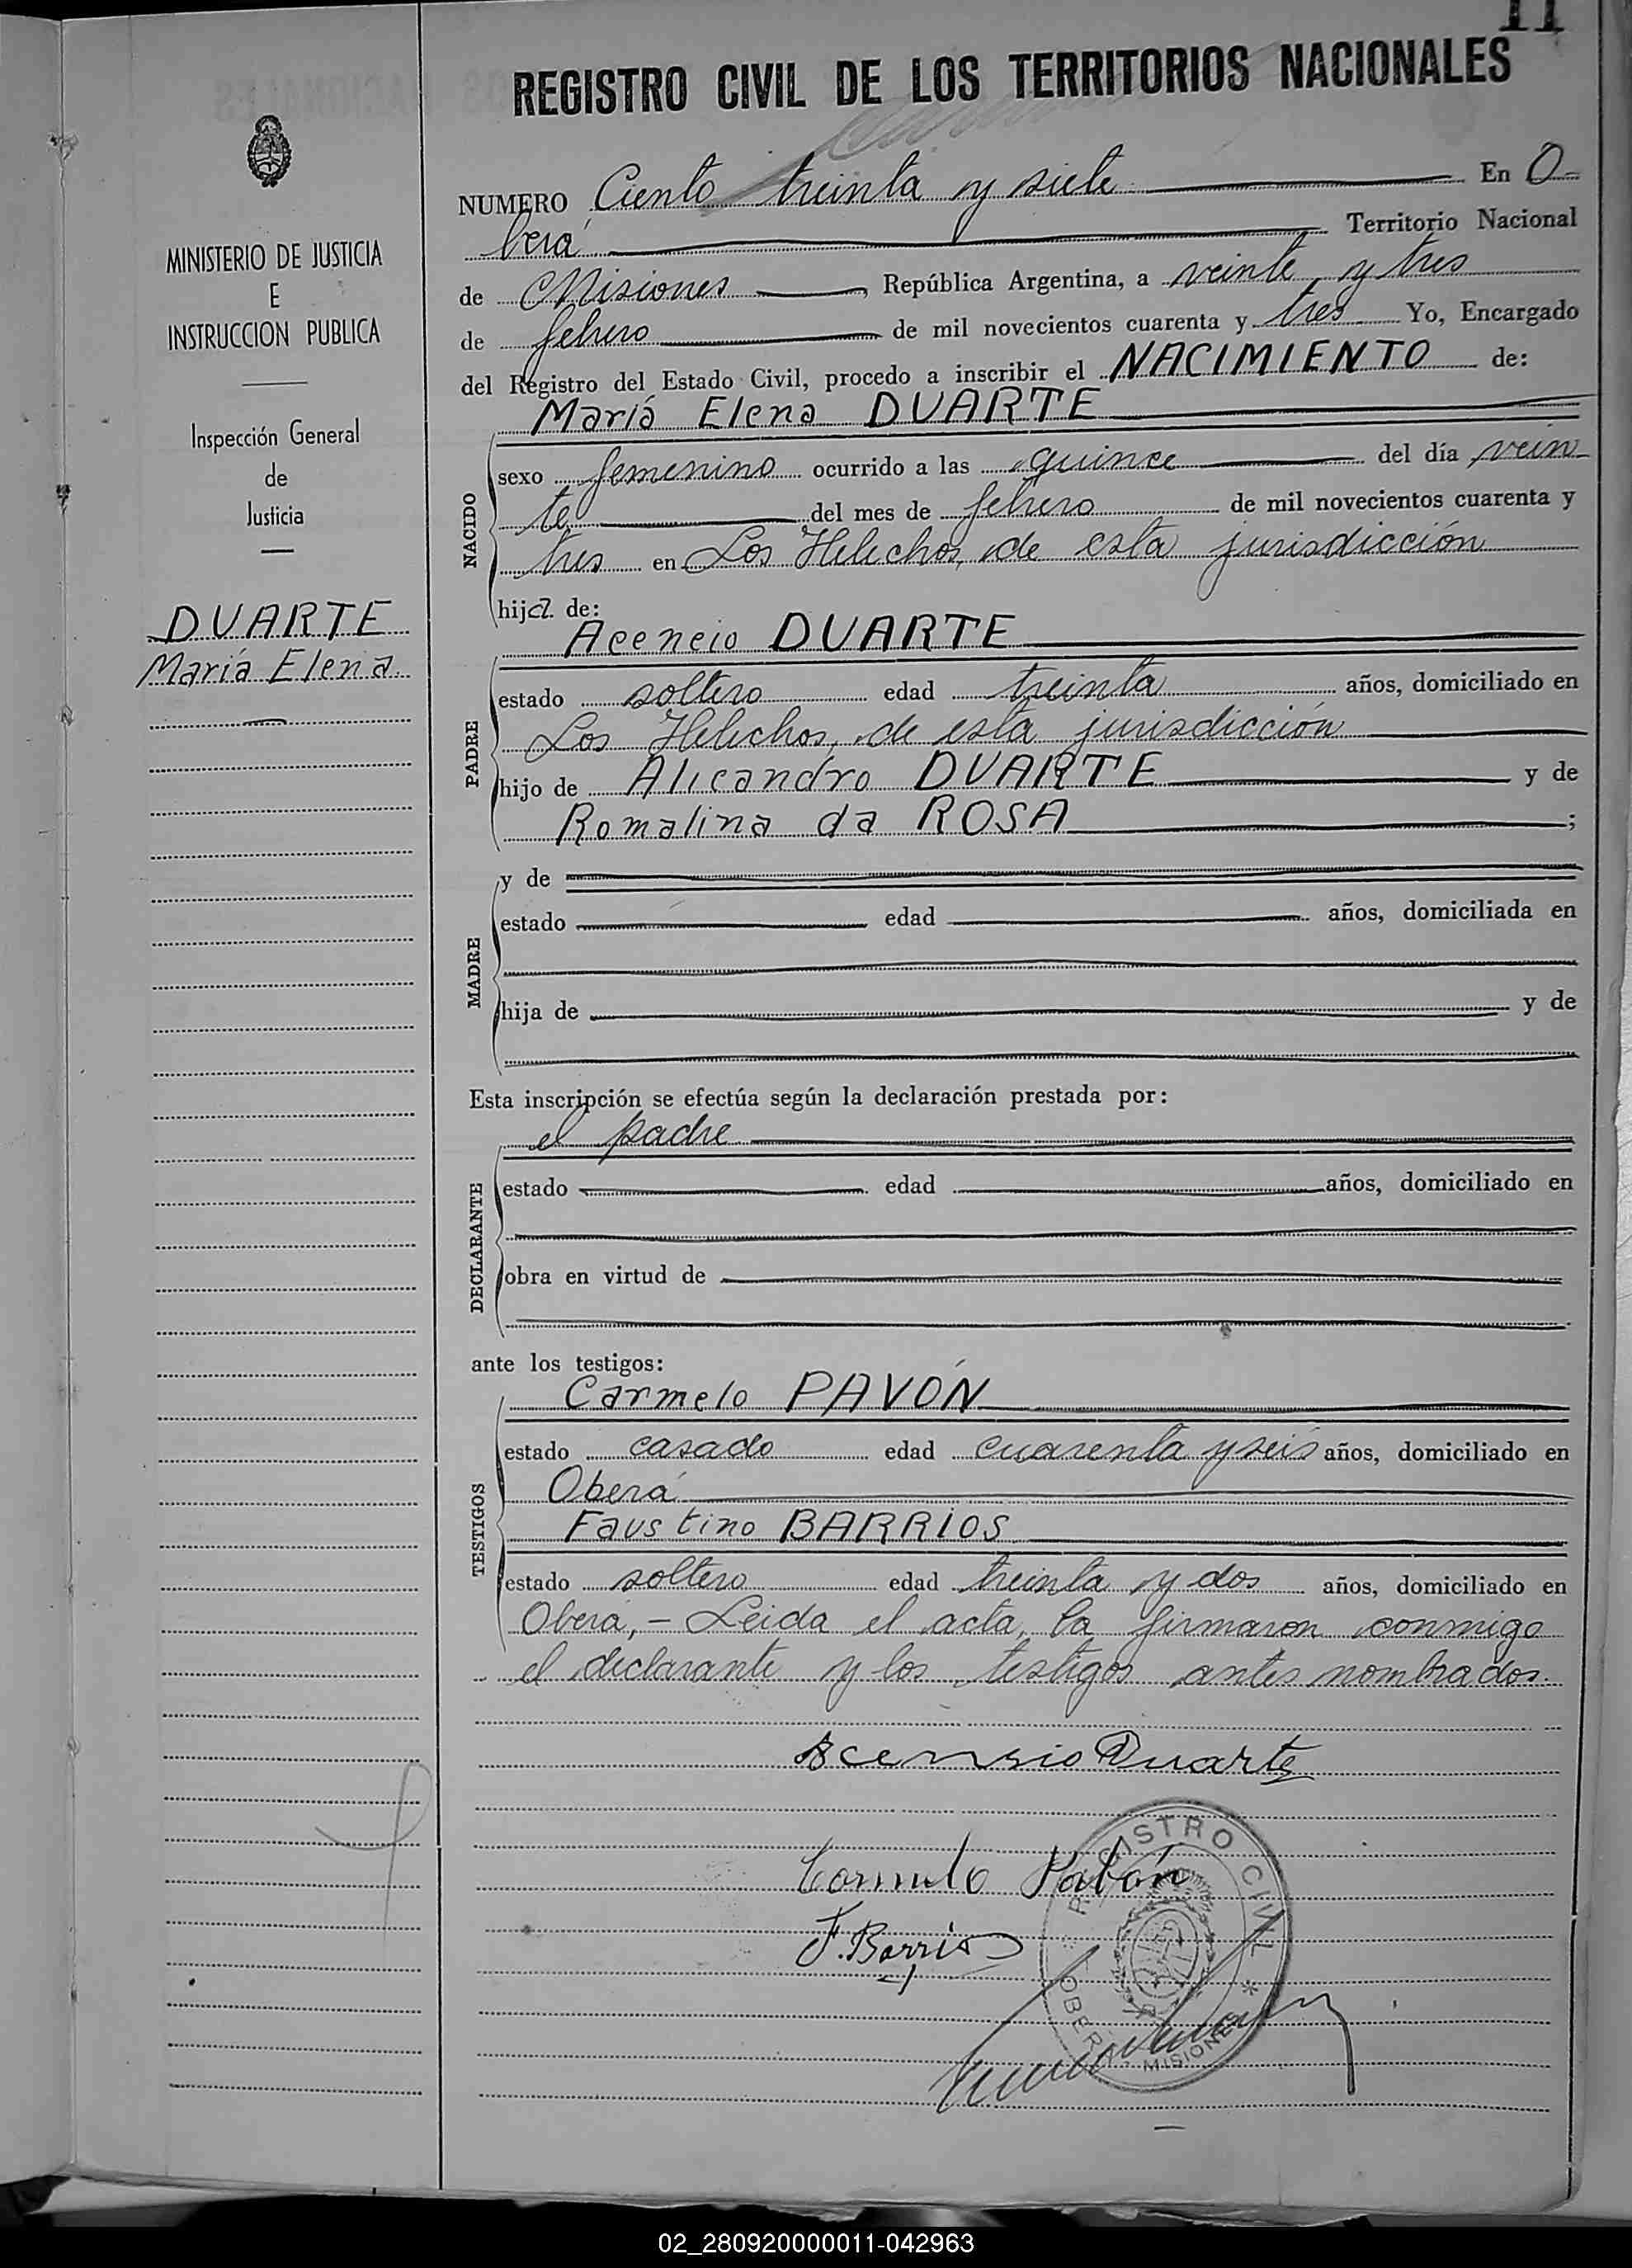 11
REGISTRO CIVIL DE LOS TERRITORIOS NACIONALES
NUMERO Ciento treinta y siete En O-
berá Territorio Nacional
de Misiones, República Argentina, a veinte y tres
de febrero de mil novecientos cuarenta y tres Yo, Encargado
del Registro del Estado Civil, procedo a inscribir el NACIMIENTO de:
María Elena DUARTE
NACIDO
sexo femenino ocurrido a las quince del día vein
te del mes de febrero de mil novecientos cuarenta y
tres en Los Helechos, de esta jurisdicción
hija de:
Acencio DUARTE
PADRE
estado soltero edad treinta años, domiciliado en
Los Helechos, de esta jurisdicción
hijo de Alicandro DUARTE y de
Romalina da ROSA ;
MADRE
y de
estado edad años, domiciliada en
hija de y de
Esta inscripción se efectúa según la declaración prestada por:
el padre
DECLARANTE
estado edad años, domiciliado en
obra en virtud de
ante los testigos:
Carmelo PAVÓN
TESTIGOS
estado casado edad cuarenta y seis años, domiciliado en
Oberá
Faustino BARRIOS
estado soltero edad treinta y dos años, domiciliado en
Oberá, - Leida el acta, la firmaron conmigo
el declarante y los testigos antes nombrados.
Acensio Duarte
Carmelo Pabón
F. Barrios
REGISTRO CIVIL
* OBERÁ - MISIONES *
MINISTERIO DE JUSTICIA
E
INSTRUCCION PUBLICA
Inspección General
de
Justicia
DUARTE
María Elena
02_280920000011-042963